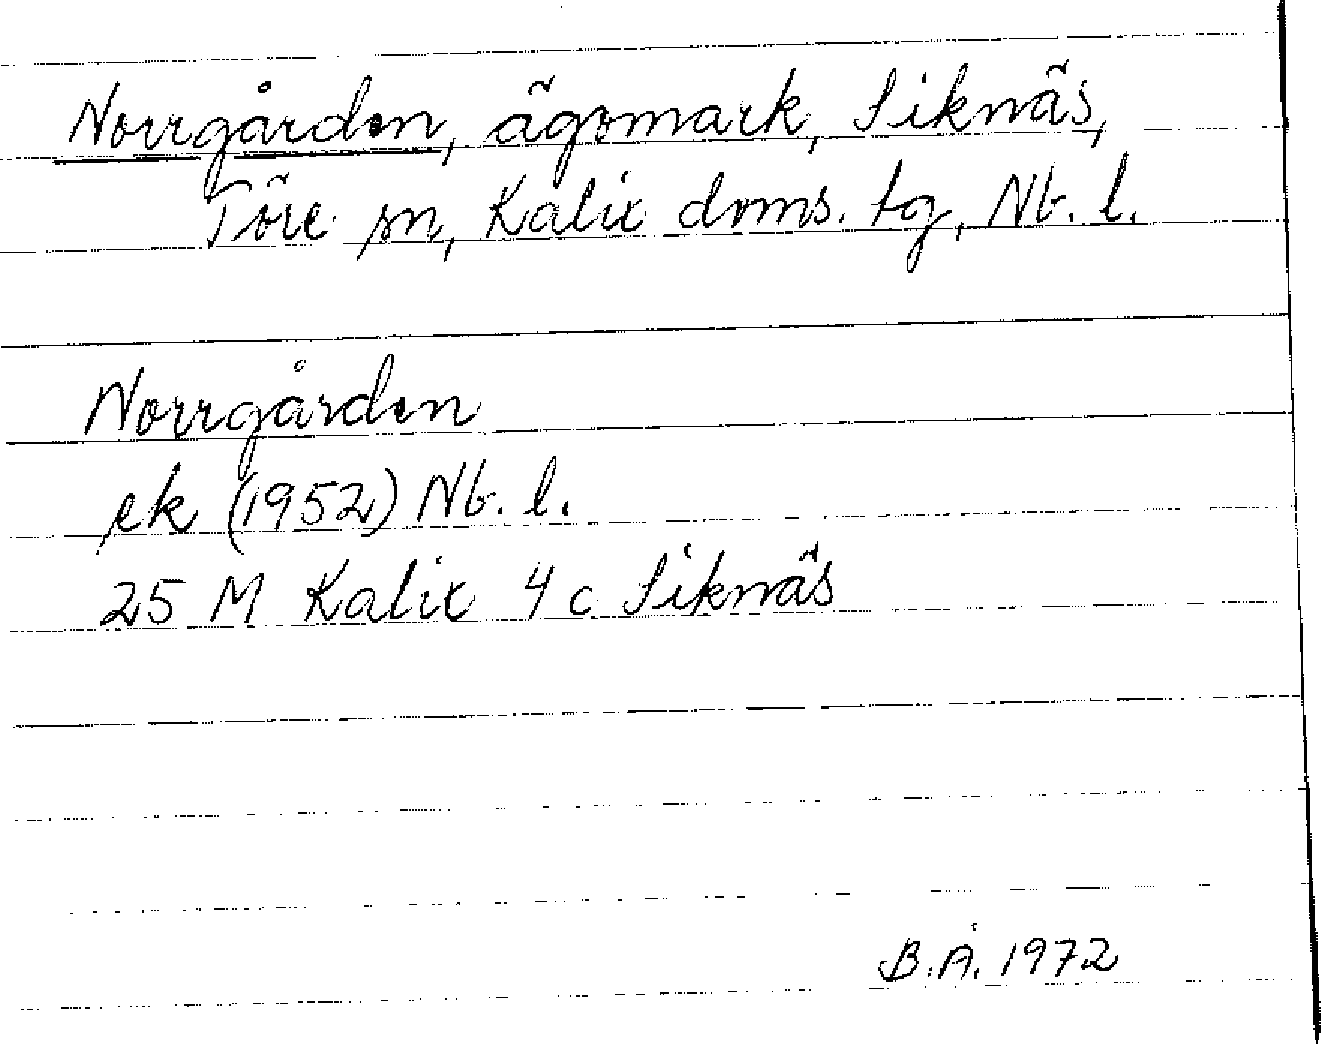 Norrgården, ägomark, Siknäs,
Töre sn, Kalix doms. tg, Nb. l.
Norrgården
ek (1952) Nb. l.
25 M Kalix 4 c Siknäs
B.Å. 1972